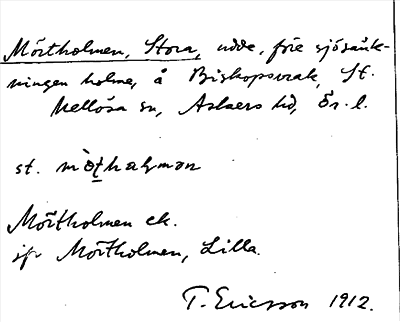 Mörtholmen, Stora, udde, före sjösänk-
ningen holme, å Biskopsvrak, St.
Mellösa sn, Askers hd, Ör. l.
st. mòţhaḷmən
Mörtholmen ek.
jfr Mörtholmen, Lilla.
T. Ericsson 1912.